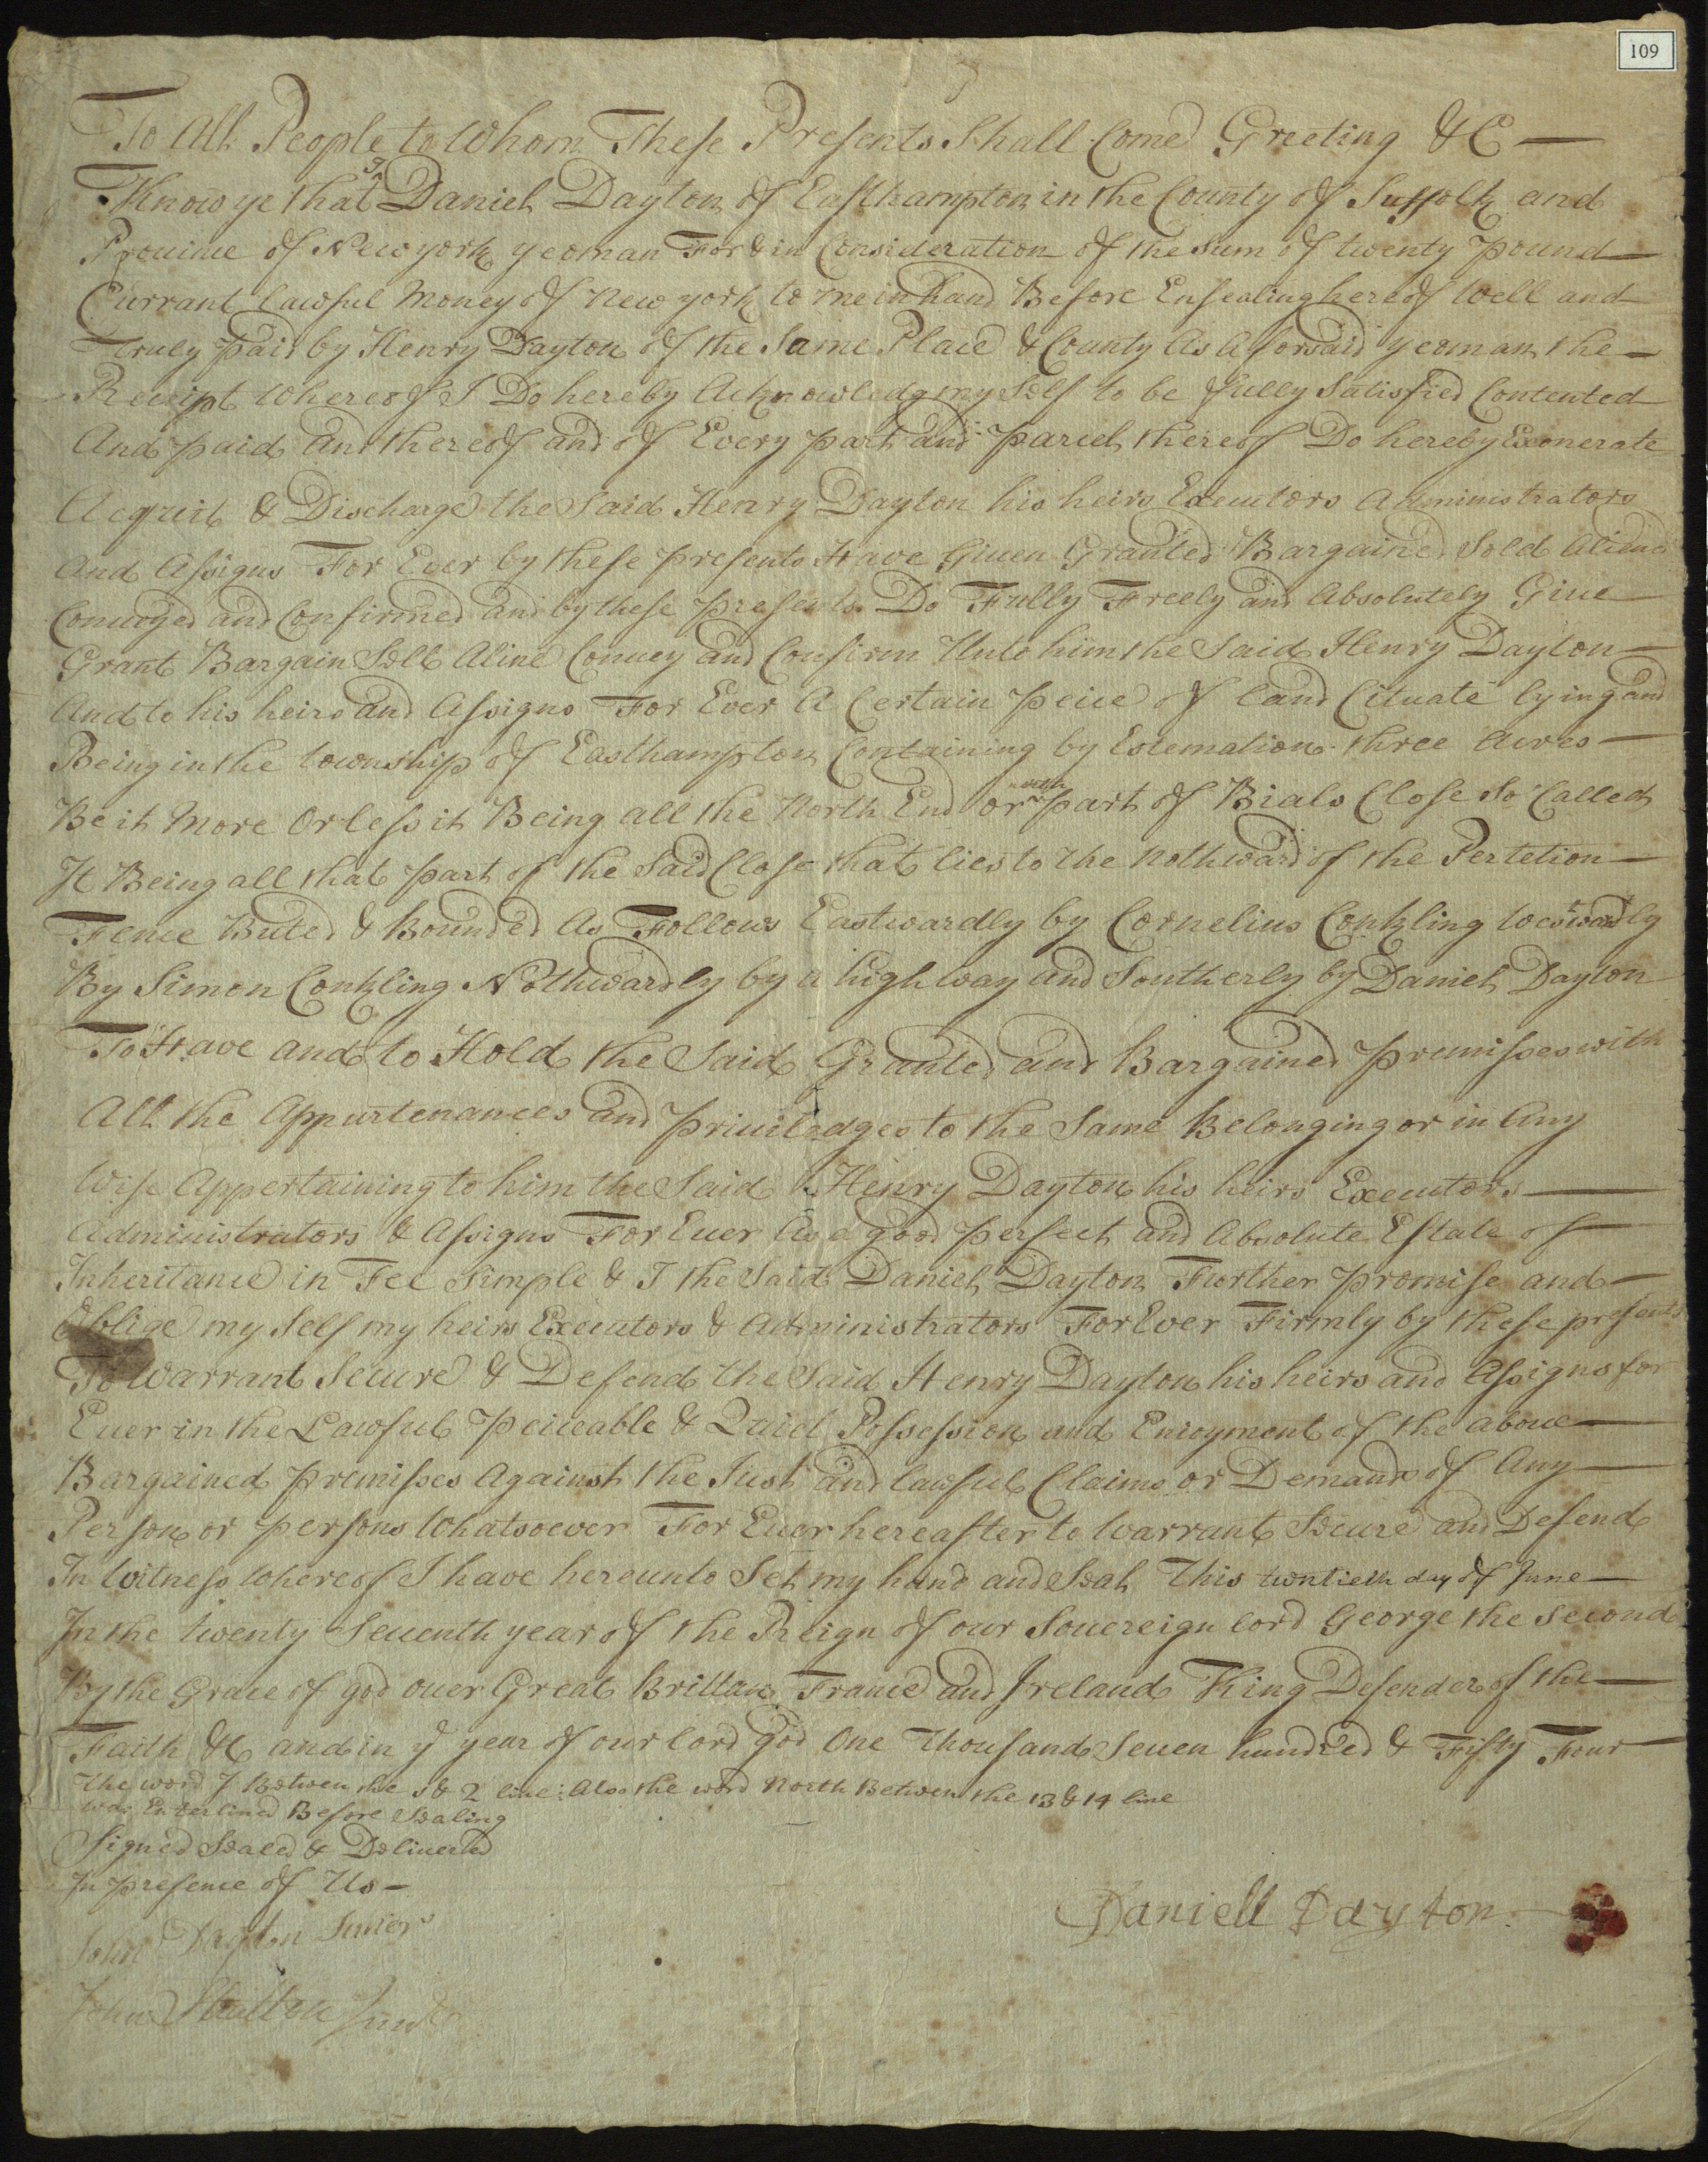 109
To All People to Whom These Presents Shall Come Greeting &C
Know ye that I Daniel Dayton of Easthampton in the County of Suffolk and
Prouince of New york yeoman For & in Consideration of the Sum of twenty pound
Currant lawful Money of New york to me in hand Before Ensealing hereof Well and
Truly paid by Henry Dayton of the Same Place & County As Aforsaid yeoman the
Receipt Whereof I Do hereby Acknowledg my Self to be fully Satisfied Contented
And paid and thereof and of Every part and parcel thereof Do hereby Exonerate
Acquit & Discharge the Said Henry Dayton his heirs Executors Administrators
And Assigns For Ever by these presents Have Giuen Granted Bargained Sold Aliend
Conueyed and Confirmed and by these presents Do Fully Freely and Absolutely Giue
Grant Bargain Sell Aline Conuey and Confirm Unto him the Said Henry Dayton
And to his heirs and Assigns For Ever A Certain peice of land Cituate lying and
Being in the township of Easthampton Containing by Estemation three Acres
Be it More Or less it Being all the North End or north part of Bials Close So Called
It Being all that part of the Said Close that lies to the Nothward of the Pertetion
Fence Buted & Bounded As Follows Eastwardly by Cornelius Conkling westwardly
By Simon Conkling Nothwardly by a high way and Southerly by Daniel Dayton
To Have and to Hold the Said Granted and Bargained premisses with
All the Appurtenances and priuiledges to the Same Belonging or in Any
Wise Appertaining to him the Said Henry Dayton his heirs Executors
Administrators & Assigns For Euer As a good perfect and Absolute Estate of
Inheritance in Fee Simple & I the Said Daniel Dayton Further promise and
Oblige my Self my heirs Executors & Administrators For Ever Firmly by these presents
To Warrant Secure & Defend the Said Henry Dayton his heirs and Assigns for
Euer in the Lawful peiceable & Quiet Possession and Enioyment of the aboue
Bargained premisses Against the Iust and lawful Claims or Demands of Any
Person or persons Whatsoever For Euer hereafter to Warrant Secure and Defend
In Witness Whereof I have hereunto Set my hand and Seal This twntieth day of June
In the twenty Seuenth year of the Reign of our Souereign lord George the Second
By the Grace of god ouer Great Brittan France and Ireland King Defender of the
Faith &C and in ye year of our lord god One Thousand Seuen hundred & Fifty Four
The word I Betwen the 1 & 2 line: Also the word North Betwen the 13 & 14 line
was Enterlined Before Sealing
Signed Sealed & Deliuered
In presence of Us
Daniell Dayton
John Dayton
John